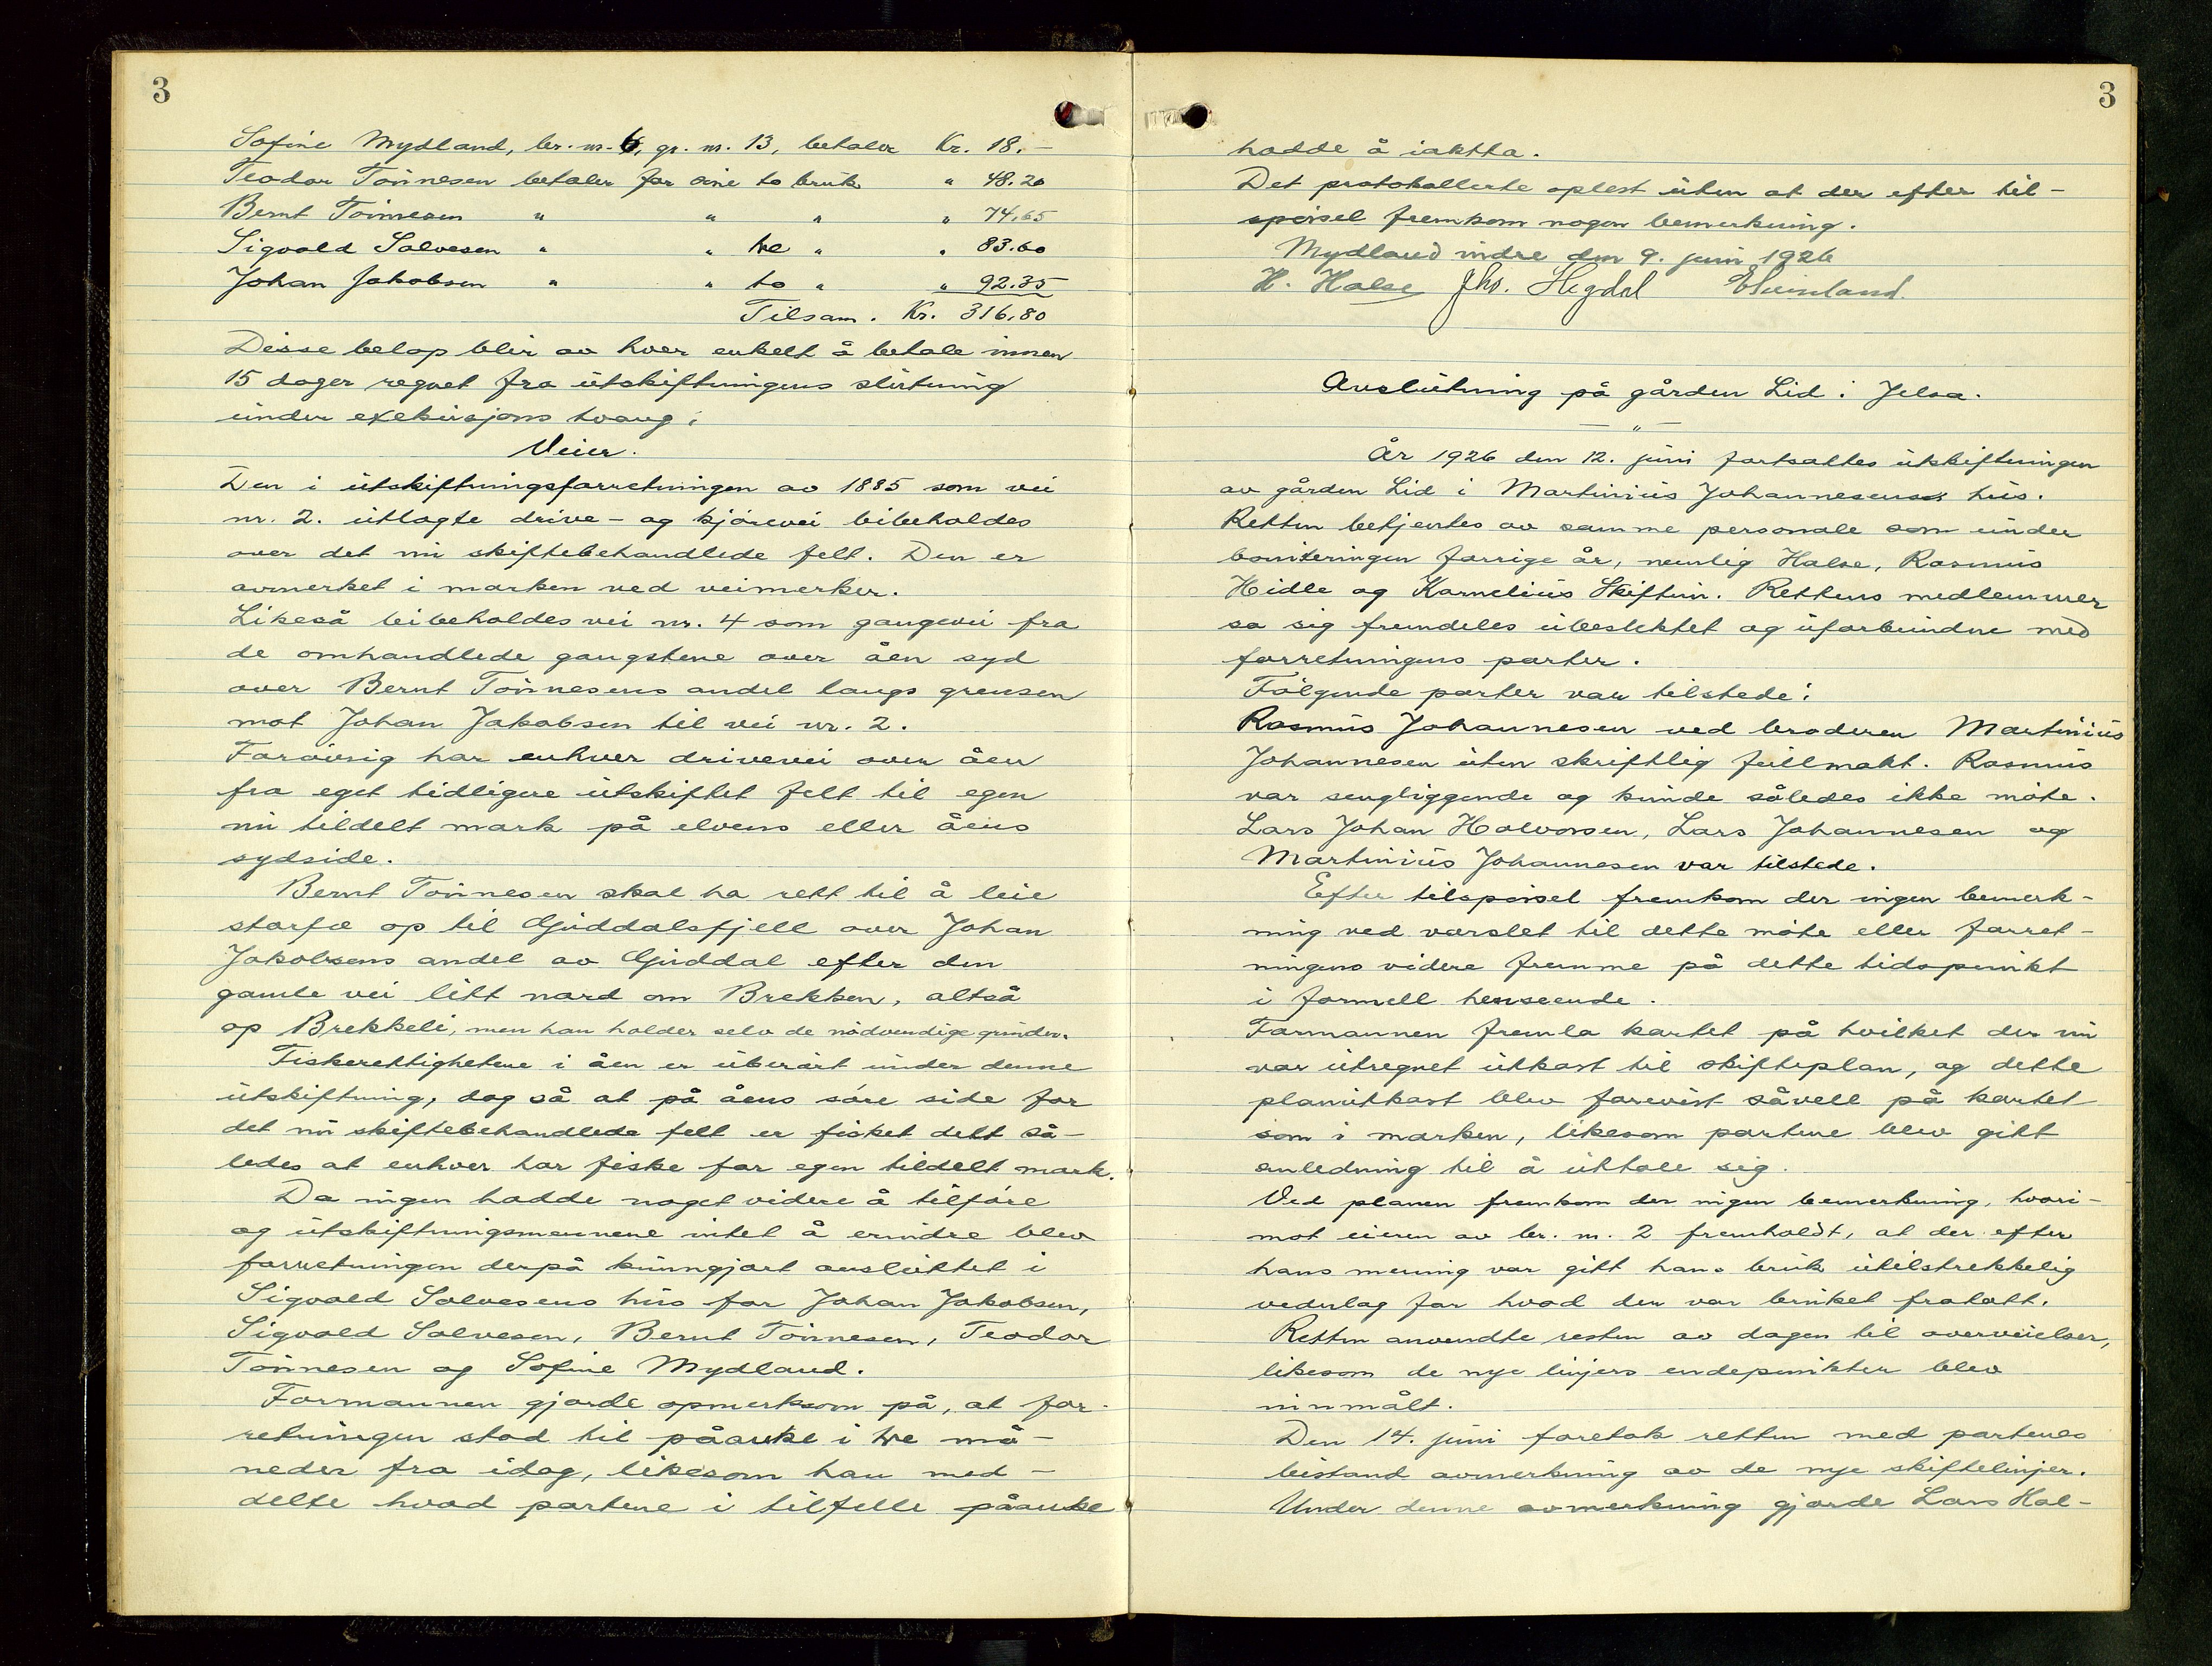 3
Sofine Mydland, br. nr. 6, gr. nr. 13, betaler Kr. 18.-
Teodor Tönnesen betaler for sine to bruk " 48.20
Bernt Tönnesen " " " " 74,65
Sigvald Salvesen " " tre " " 83.60
Johan Jakobsen " " to " " 92.35
Tilsam. Kr. 316,80
Disse belöp blir av hver enkelt å betale innen
15 dager regnet fra utskiftningens slutning
under exekusjons tvang.
Veier.
Den i utskiftningsforretningen av 1885 som vei
nr. 2. utlagte drive- og kjörevei bibeholdes
over det nu skiftebehandlede felt. Den er
avmerket i marken ved veimerker.
Likeså bibeholdes vei nr. 4 som gangvei fra
de omhandlede gangstene over åen syd
over Bernt Tönnesens andel langs grensen
mot Johan Jakobsen til vei nr. 2.
Forövrig har enhver drivevei over åen
fra eget tidligere utskiftet felt til egen
nu tildelt mark på elvens eller åens
sydside.
Bernt Tönnesen skal ha rett til å leie
storfe op til Guddalsfjell over Johan
Jakobsens andel av Guddal efter den
gamle vei litt nord om Brekken, altså
op Brekkeli, men han holder selv de nödvendige grinder.
Fiskerettighetene i åen er uberört under denne
utskiftning, dog så at på åens söre side for
det nu skiftebehandlede felt er fisket delt så-
ledes at enhver har fiske for egen tildelt mark.
Da ingen hadde noget videre å tilföre
og utskiftningsmennene intet å erindre blev
forretningen derpå kunngjort avsluttet i
Sigvald Salvesens hus for Johan Jakobsen,
Sigvald Salvesen, Bernt Tönnesen, Teodor
Tönnesen og Sofine Mydland.
Formannen gjorde opmerksom på, at for-
retningen stod til påanke i tre må-
neder fra idag, likesom han med-
delte hvad partene i tilfelle påanke
3
hadde å iaktta.
Det protokollerte oplest uten at der efter til-
spörsel fremkom nogen bemerkning.
Mydland indre den 9. juni 1926
H. Halse Jhs. Hegdal
Avslutning på gården Lid i Jelsa.
- " -
År 1926 den 12. juni fortsattes utskiftningen
av gården Lid i Martinius Johannesens hus.
Retten betjentes av samme personale som under
boniteringen forrige år, nemlig Halse, Rasmus
Hidle og Kornelius Skiftun. Rettens medlemmer
sa sig fremdeles ubeslektet og uforbundne med
forretningens parter.
Fölgende parter var tilstede:
Rasmus Johannesen ved broderen Martinius
Johannesen uten skriftlig fullmakt. Rasmus
var sengliggende og kunde således ikke möte.
Lars Johan Halvorsen, Lars Johannesen og
Martinius Johannesen var tilstede.
Efter tilspörsel fremkom der ingen bemerk-
ning ved varslet til dette möte eller forret-
ningens videre fremme på dette tidspunkt
i formell henseende.
Formannen fremla kartet på hvilket der nu
var utregnet utkast til skifteplan, og dette
planutkast blev forevist såvell på kartet
som i marken, likesom partene blev gitt
anledning til å uttale sig.
Ved planen fremkom der ingen bemerkning, hvori-
mot eieren av br. nr. 2 fremholdt, at der efter
hans mening var gitt hans bruk utilstrekkelig
vederlag for hvad der var bruket fratatt.
Retten anvendte resten av dagen til overveielser,
likesom de nye linjers endepunkter blev
innmålt.
Den 14. juni foretok retten med partenes
bistand avmerkning av de nye skiftelinjer.
Under denne avmerkning gjorde Lars Hal-